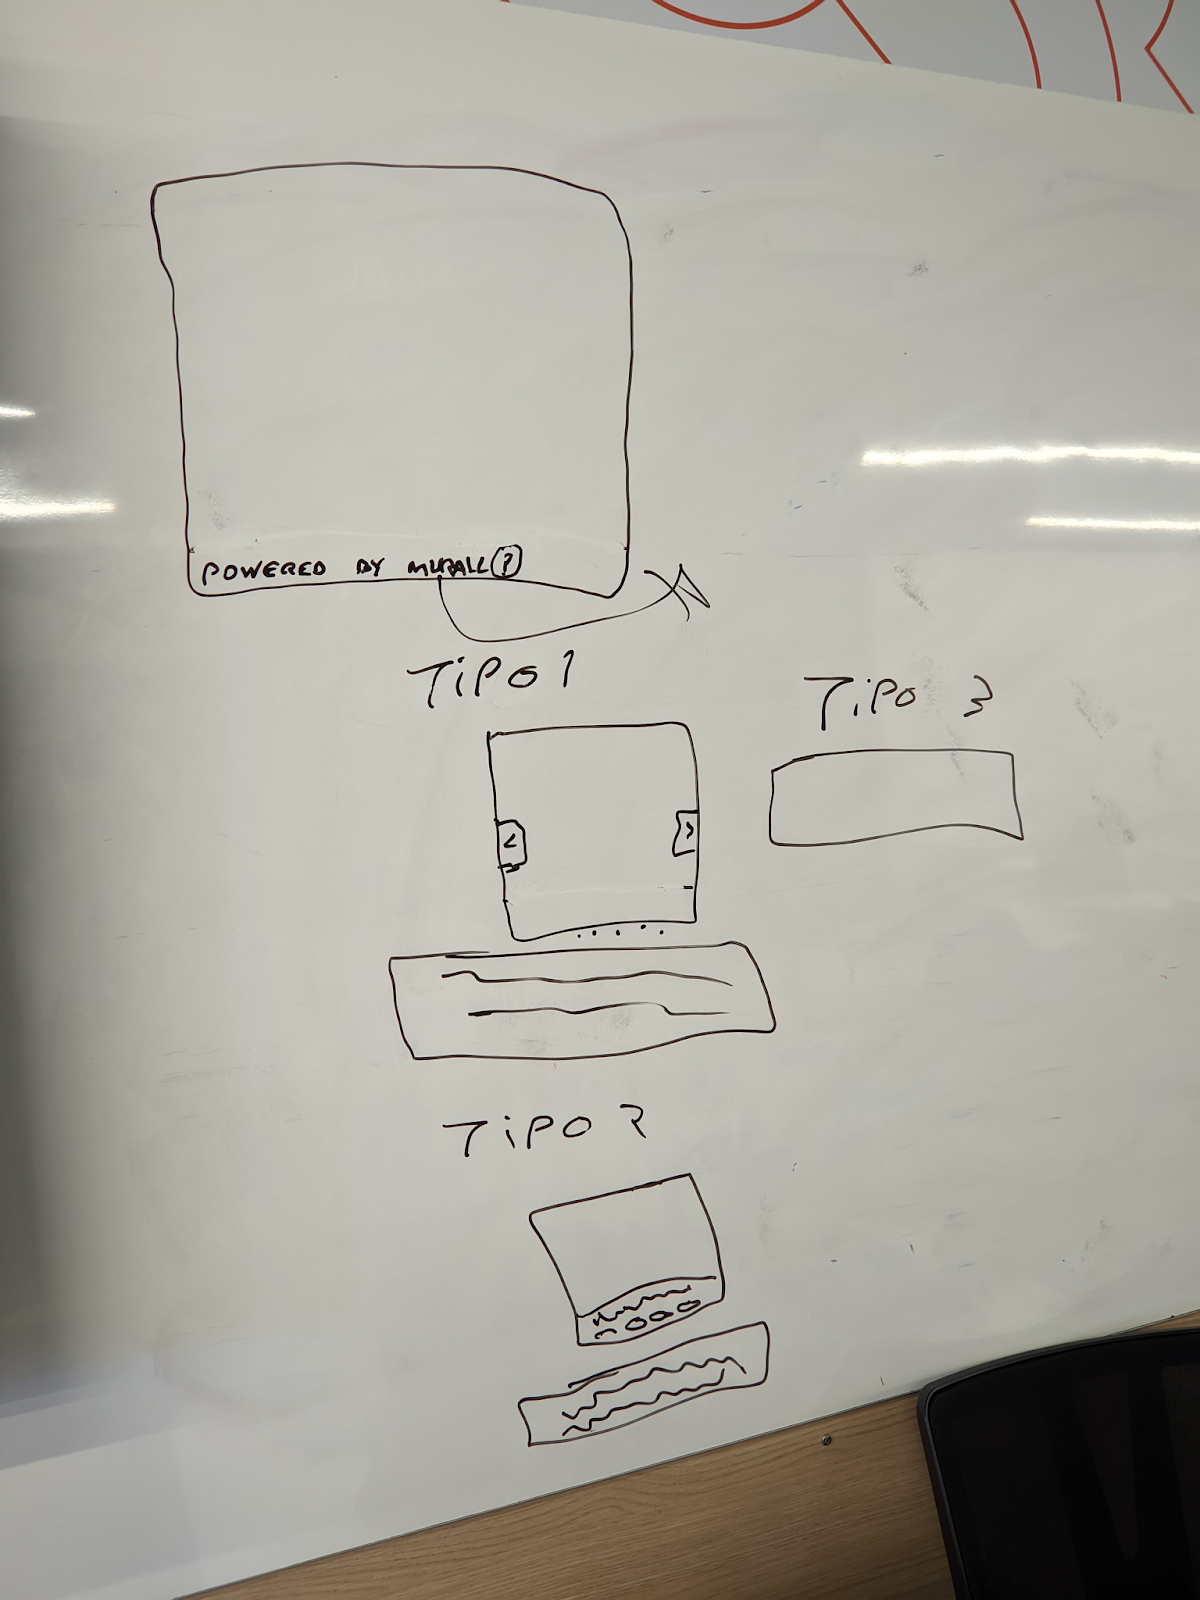 POWERED BY MURALL ?
TiPO 1
TiPO 3
< >
TiPO 2